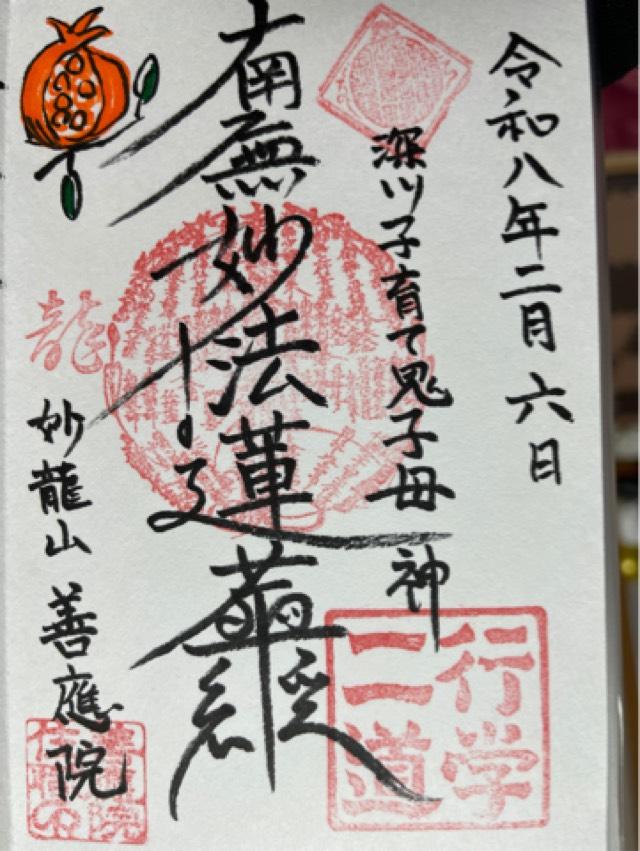 令和八年二月六日
深川子育て鬼子母神
南無妙法蓮華経
龍
妙龍山 善應院
行学
二道